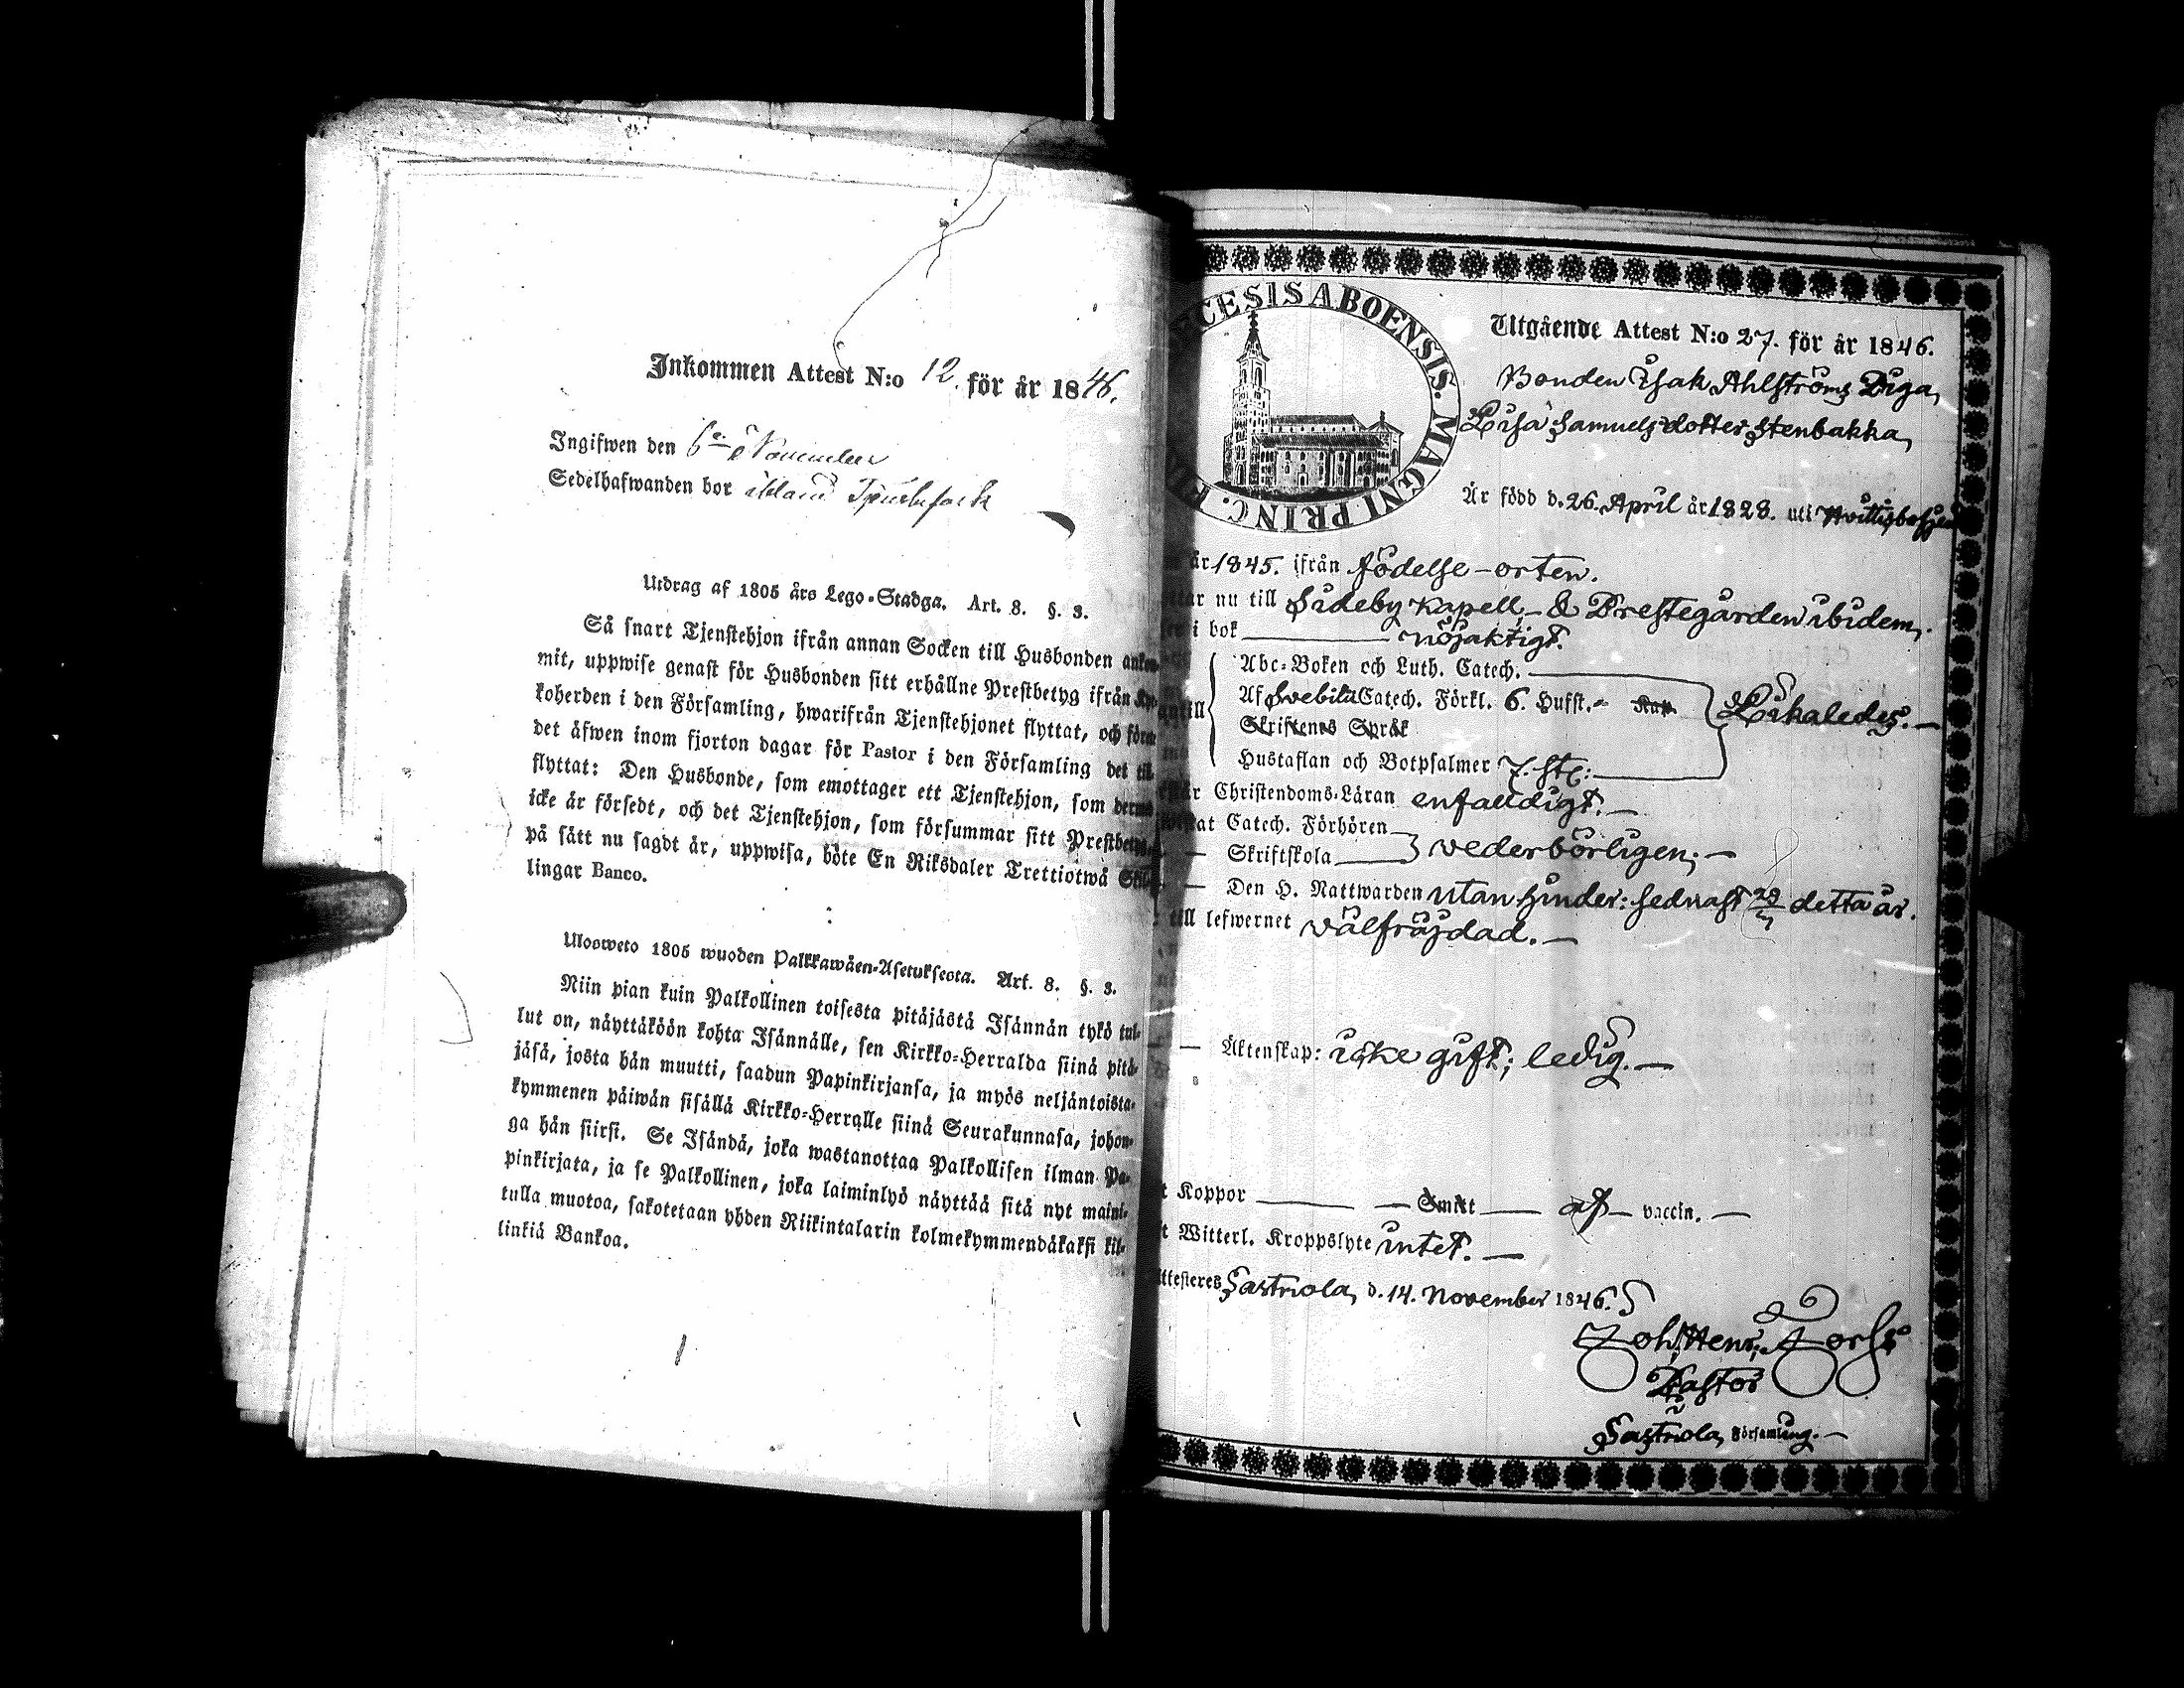 Inkommen Attest N:o 12. för år 1846.
Ingifwen den 6te November
Sedelhafwanden bor ibland
Utdrag af 1805 års Lego-Stadga. Art. 8. §. 3.
Så snart Tjenstehjon ifrån annan Socken till Husbonden
mit, uppwise genast för Husbonden sitt erhållne Prestbetyg ifrån
koherden i den Församling, hwarifrån Tjenstehjonet flyttat, och
det äfwen inom fjorton dagar för Pastor i den Församling det
flyttat: Den Husbonde, som emottager ett Tjenstehjon, som
icke är försedt, och det Tjenstehjon, som försummar sitt
på sätt nu sagdt är, uppwisa, böte En Riksdaler Trettiotwå
lingar Banco.
Ulosweto 1805 wuoden Palkkawäen-Asetuksesta. Art. 8. §. 3.
Niin pian kuin Palkollinen toisesta pitäjästä Isännän tykö tul-
lut on, näyttäköön kohta Isännälle, sen Kirkko-Herralda siinä pitä-
jäsä, josta hän muutti, saadun Papinkirjansa, ja myös neljäntoista-
kymmenen päiwän sisällä Kirkko-Herralle siinä Seurakunnasa, johon-
ga hän siirsi. Se Isändä, joka wastanottaa Palkollisen ilman Pa-
pinkirjata, ja se Palkollinen, joka laiminlyö näyttää sitä nyt maini-
tulla muotoa, sakotetaan yhden Riikintalarin kolmekymmendäkaksi kil-
linkiä Bankoa.
CESIS ABOENSIS. MAGNI PRINC.
Utgående Attest N:o 27. för år 1846.
Bonden Isak Ahlströms Piga,
Lisa Samuelsdotter Stenbakka,
Är född d. 26. April år 1828. uti
år 1845. ifrån födelse-orten.
nu till Sideby Kapell, & Prestegården ibidem.
i bok nöjaktigt.
Abc-Boken och Luth. Catech.
Af Svebilii Catech. Förkl. 6. Hufst. Kap.
Skriftenes Språk
Hustaflan och Botpsalmer 7. st:
Likaledes.
Christendoms-Läran enfaldigt.
Catech. Förhören
Skriftskola wederbörligen;
Den H. Nattwarden utan hinder: sednast detta år.
till lefwernet välfräjdad.
Äktenskap: icke gift; ledig.
Koppor Smitt af vaccin.
Witterl. Kroppslyte intet.
d. 14. November 1846.
Joh. Henr. Forss
Pastor
Församling.